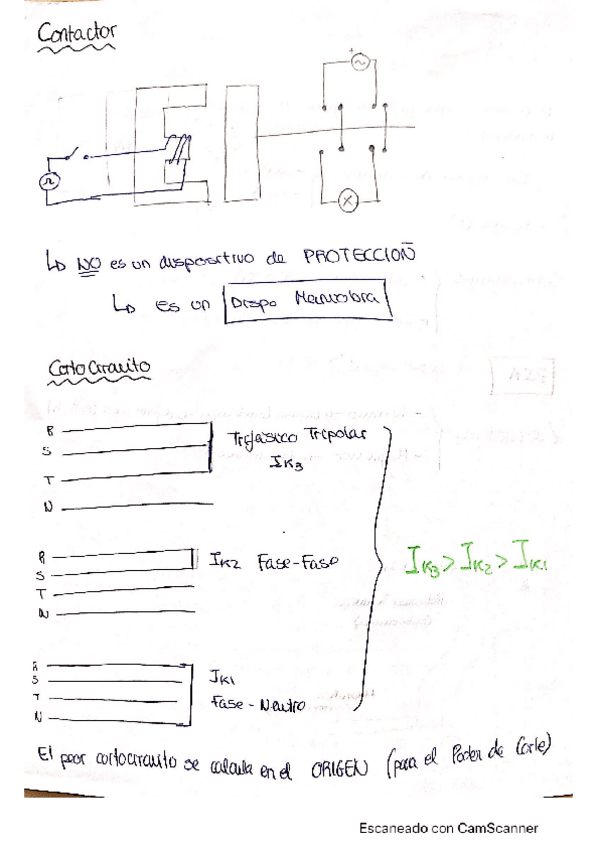 Contactor
↳ NO es un dispositivo de PROTECCIÓN
↳ es un Dispo Maniobra
Cortocircuito
R
S
T
N
Trifásico Tripolar
IK3
R
S
T
N
IK2 Fase-Fase
IK3 > IK2 > IK1
R
S
T
N
IK1
Fase - Neutro
El peor cortocircuito se calcula en el ORIGEN (para el Poder de Corte)
Escaneado con CamScanner